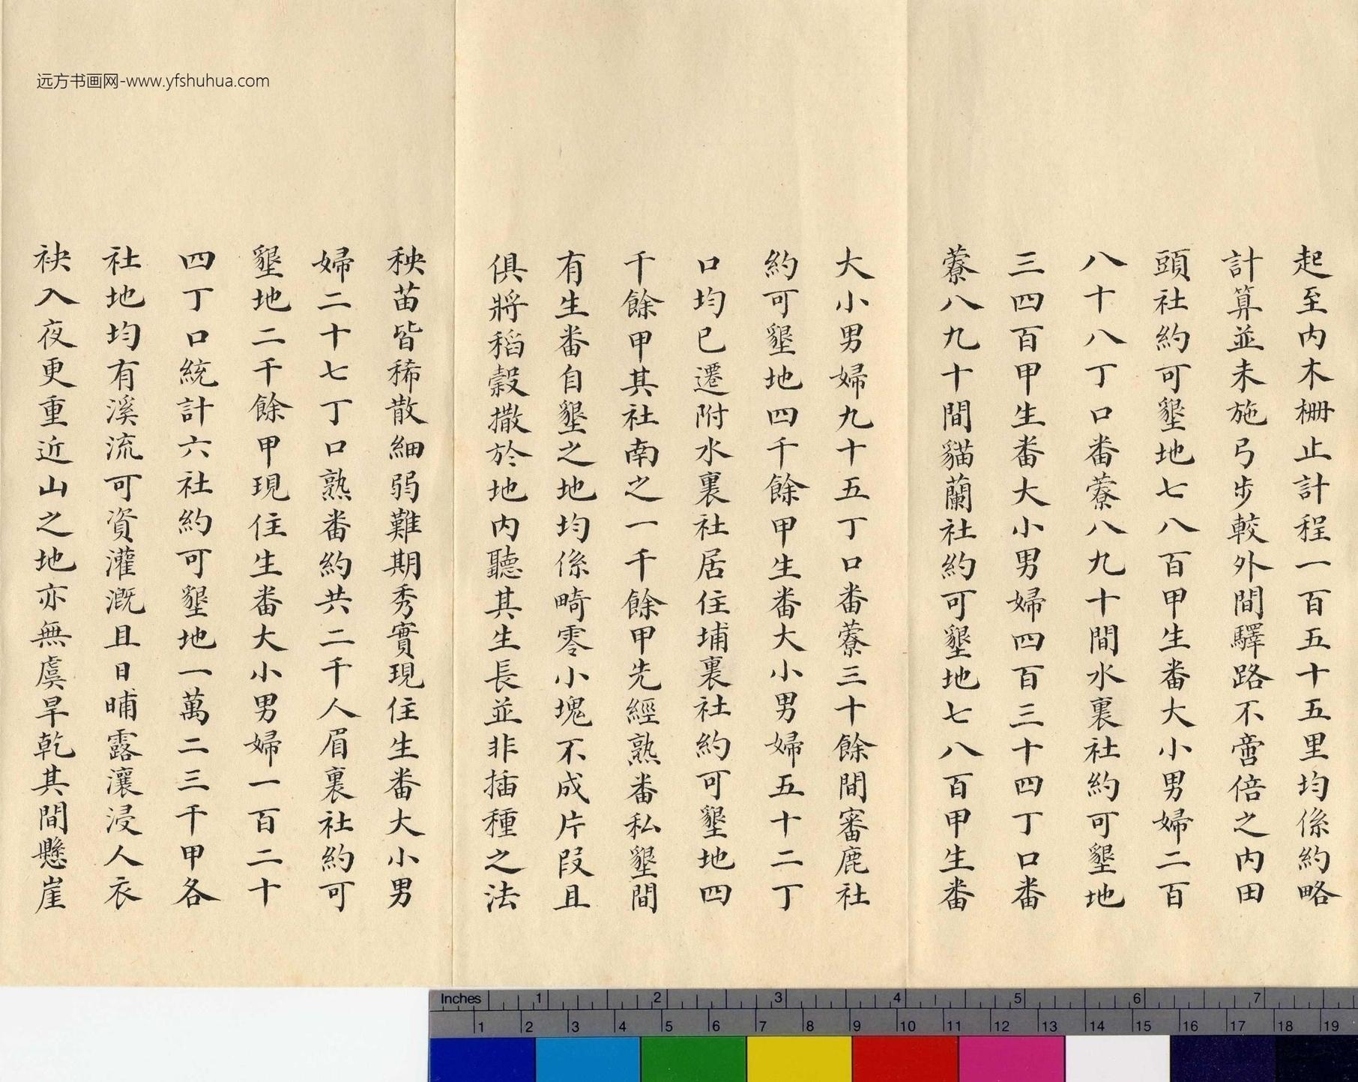 远方书画网-www.yfshuhua.com
起至内木柵止計程一百五十五里均係約略
計算並未施弓步較外間驛路不啻倍之内田
頭社約可墾地七八百甲生番大小男婦二百
八十八丁口番藔八九十間水裏社約可墾地
三四百甲生番大小男婦四百三十四丁口番
藔八九十間貓蘭社約可墾地七八百甲生番
大小男婦九十五丁口番藔三十餘間審鹿社
約可墾地四千餘甲生番大小男婦五十二丁
口均已遷附水裏社居住埔裏社約可墾地四
千餘甲其社南之一千餘甲先經熟番私墾間
有生番自墾之地均係畸零小塊不成片段且
俱將稻穀撒於地内聽其生長並非插種之法
秧苗皆稀散細弱難期秀實現住生番大小男
婦二十七丁口熟番約共二千人眉裏社約可
墾地二千餘甲現住生番大小男婦一百二十
四丁口統計六社約可墾地一萬二三千甲各
社地均有溪流可資灌溉且日晡露瀼浸人衣
袂入夜更重近山之地亦無虞旱乾其間懸崖
Inches 1 2 3 4 5 6 7
1 2 3 4 5 6 7 8 9 10 11 12 13 14 15 16 17 18 19